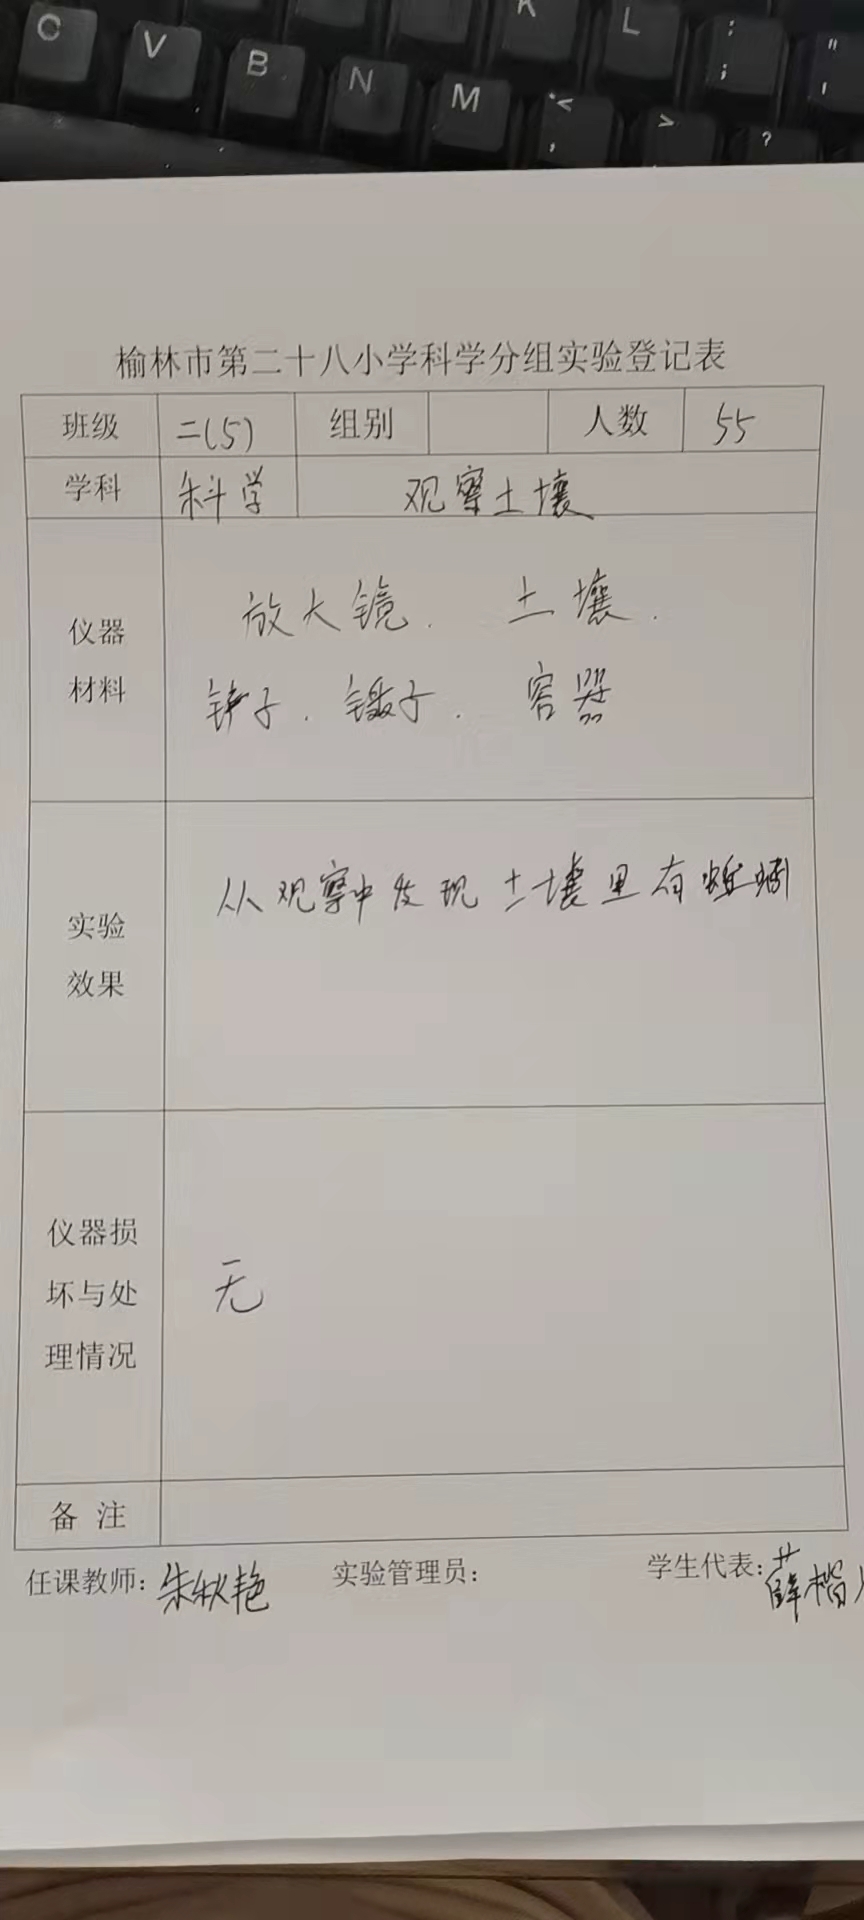 C V B N M K L : ; " ' < , > ?
榆林市第二十八小学科学分组实验登记表
班级 二(5) 组别 人数 55
学科 科学 观察土壤
仪器 放大镜. 土壤.
材料 铲子. 镊子. 容器
实验 从观察中发现土壤里有蚯蚓
效果
仪器损
坏与处 无
理情况
备 注
任课教师: 朱秋艳 实验管理员: 学生代表: 薛楷